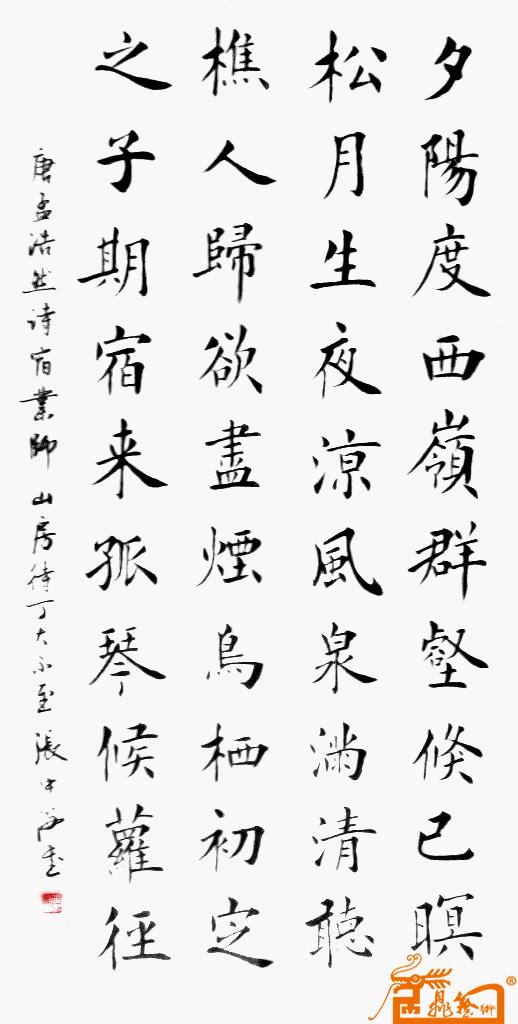 夕陽度西嶺群壑倏已暝
松月生夜涼風泉滿清聽
樵人歸欲盡煙鳥栖初定
之子期宿来孤琴候蘿徑
唐孟浩然诗宿業師山房待丁大不至 張中